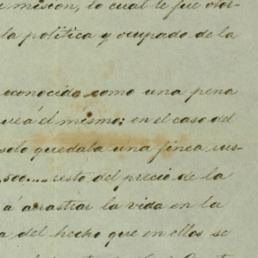 misión, lo cual le fue otor-
la política y ocupado de la
conocido como una pena
el mismo: en el caso del
solo quedaba una finca, sus-
500.... resto del precio de la
á arrastrar la vida en la
del hecho que en ellos se